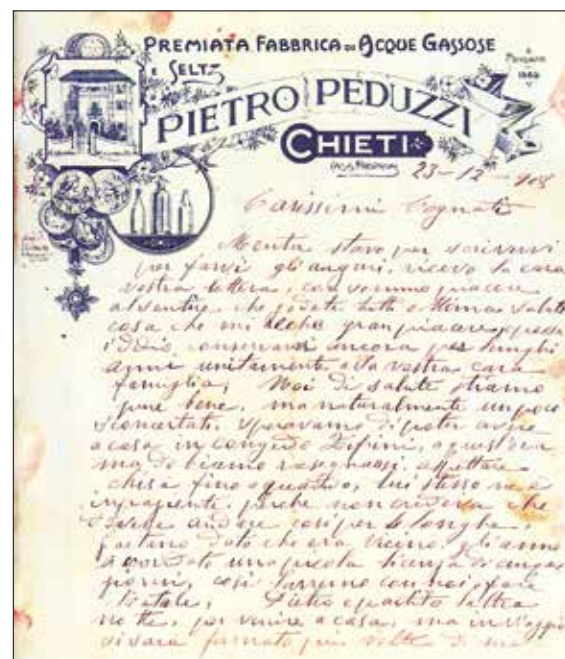 PREMIATA FABBRICA DI ACQUE GASSOSE
E SELTZ
PIETRO PEDUZZI
CHIETI
CASA PROPRIA
23-12-
Carissimi Cognati
Mentre stavo per scrivervi
per farvi gli auguri, ricevo la cara
vostra lettera, con sommo piacere
al sentire che godete tutti ottima salute
cosa che mi reche gran piacere,
Iddio conservarvi ancora per lunghi
anni unitamente alla vostra cara
famiglia; Noi di salute stiamo
pure bene, ma naturalmente un poco
sconcertati, speravamo di poter avere
a casa in congedo a quest'ora
ma dobbiamo rassegnarsi, aspettare
chi sa fino a quando, lui stesso ne è
impaziente, perche non credeva che
andare cosi per le longhe.
Gaetano dato che era vicino, gli anno
accordato una piccola licenza di cinque
giorni, cosi verranno con noi, fare
Natale, Pietro è partito l'altra
notte, per venire a casa, ma in viaggio
si sara fermato piu volte